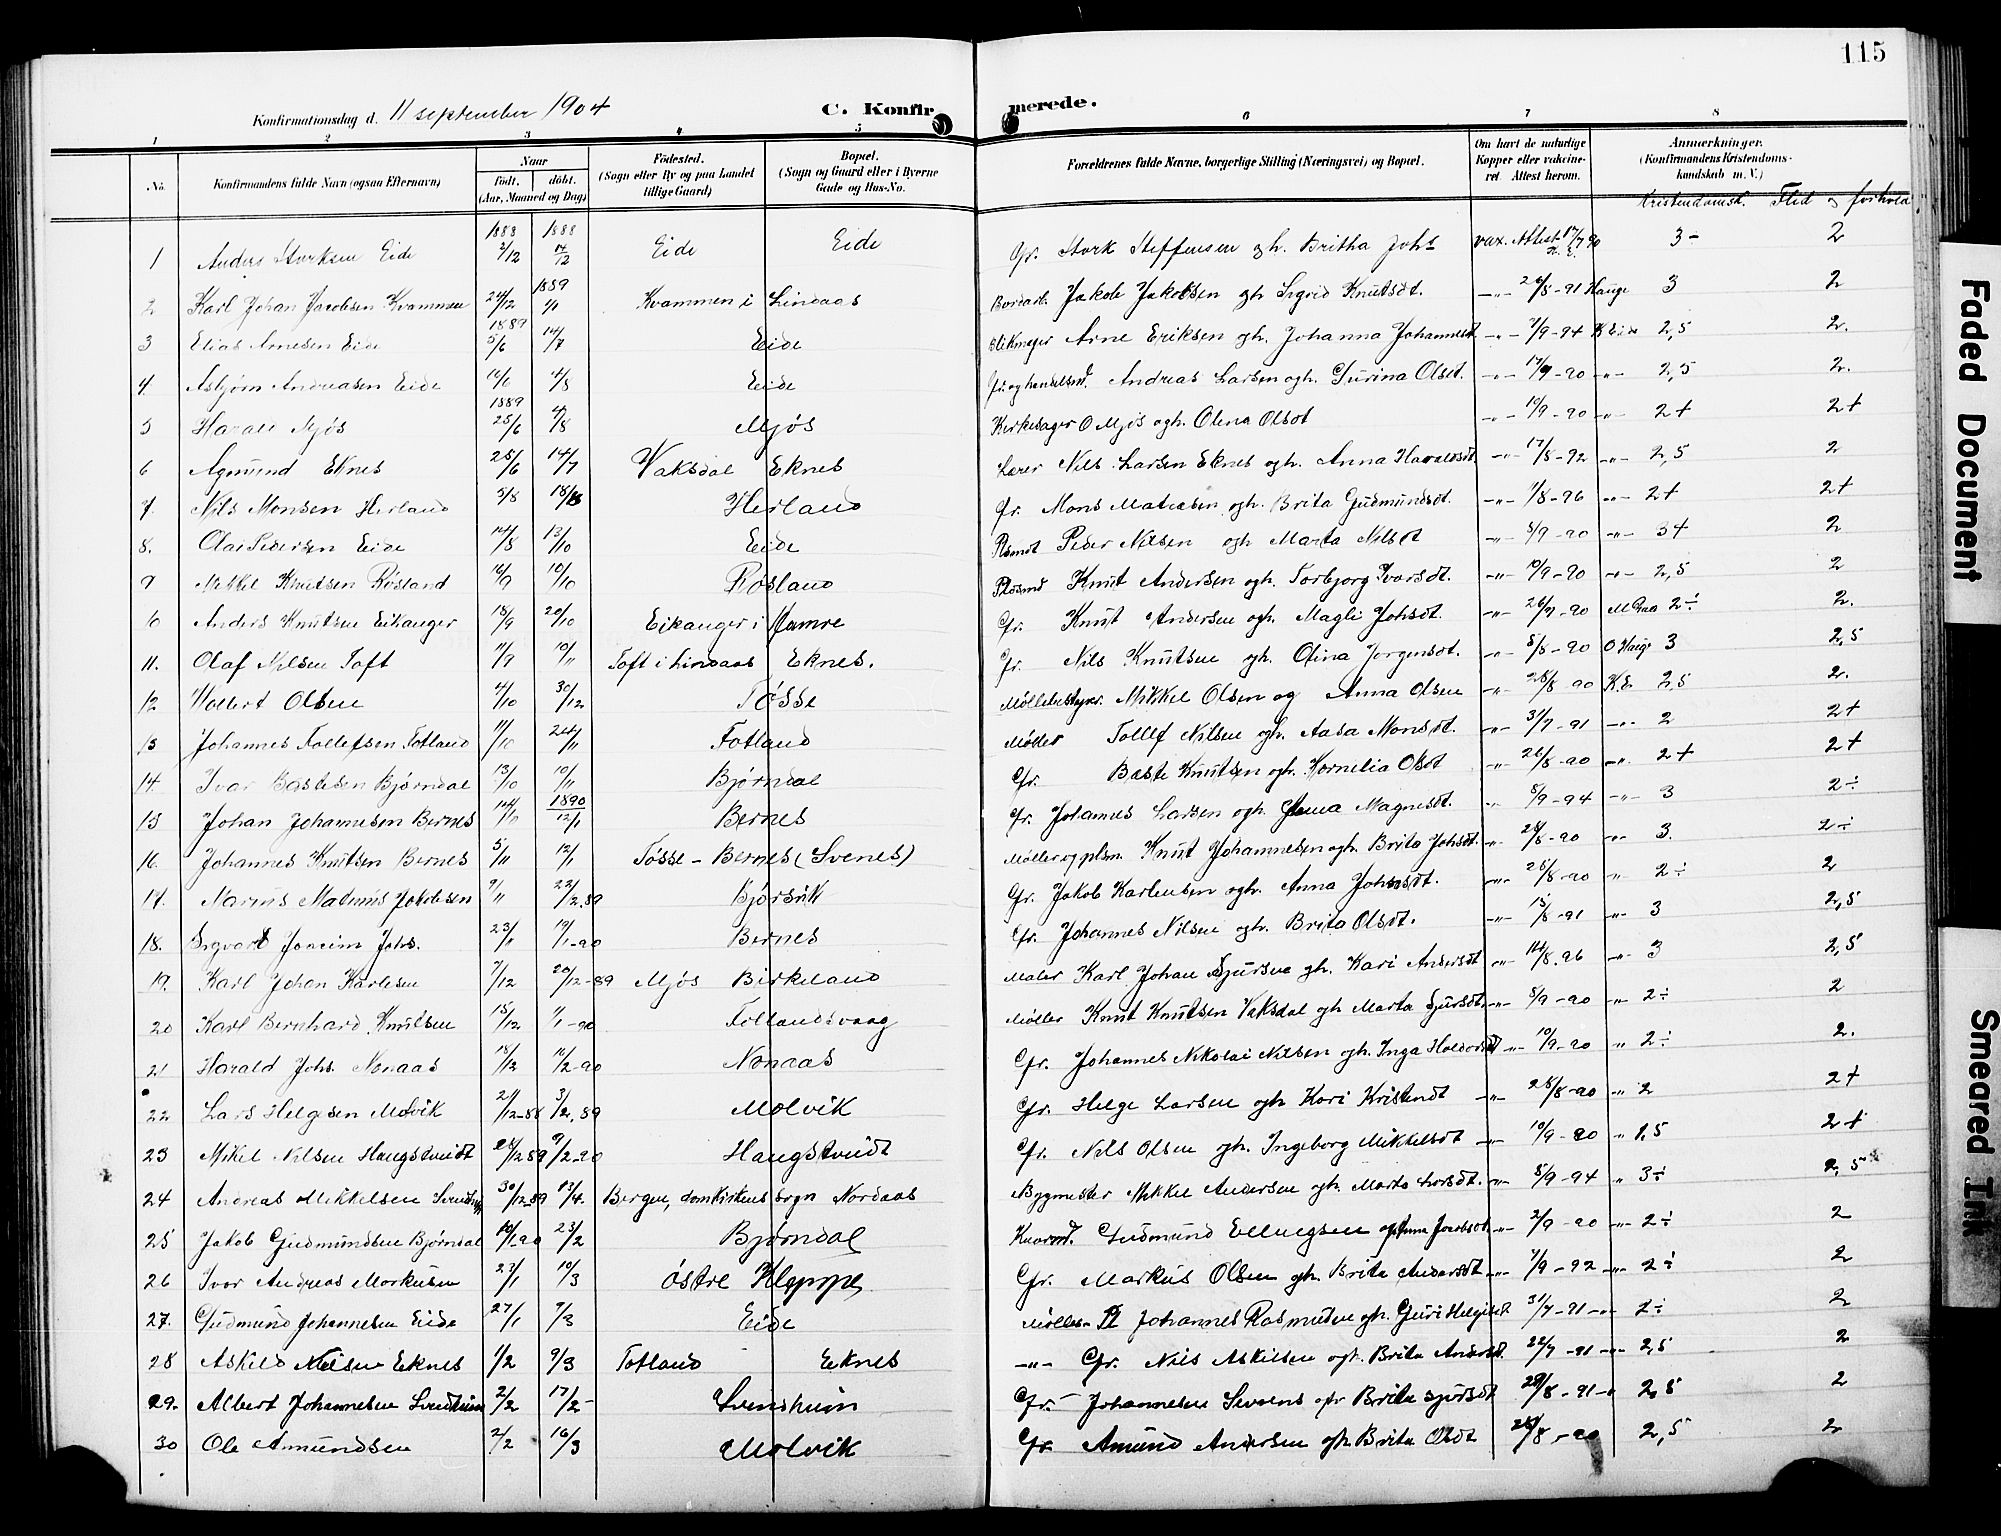 115
Konfirmationsdag d. 11 september 1904
C. Konfirmerede.
1 2 3 4 5 6 7 8
No. Konfirmandens fulde Navn (ogsaa Efternavn)
Naar født, døbt. (Aar, Maaned og Dag)
Fødested. (Sogn eller By og paa Landet tillige Gaard)
Bopæl. (Sogn og Gaard eller i Byerne Gade og Hus-No.
Forældrenes fulde Navne, borgerlige Stilling (Næringsvei) og Bopæl.
Om havt de naturlige Kopper eller vakcineret. Attest herom.
Anmerkninger. (Konfirmandens Kristendomskundskab m. V.)
Kristendomsk. Flid og forhold
1 Anders Storksen Eide 1888 2/12 1888 Eide Eide Gr. Stork Steffensen gh. Britha Johs vax. Attest 17/7 90 3- 2
2 Karl Johan Jacobsen Kvammen 24/12 1889 Kvammen i Lindaas Jakob Jakobsen gh Sigrid Knutsdt. -"- 26/8-91 Hauge 3 2
3 Elias Arnesen Eide 1889 5/6 14/7 Eide Arne Eriksen gh. Johanna Johannesdt. -"- 7/9-94 K Eide 2,5 2.
4. Asbjørn Andreasen Eide 4/8 Eide Andreas Larsen ogh. Gurina Olsdt. -"- 17/9-90 -"- 2,5 2.
5 Harald Mjøs 1889 25/6 4/8 Mjøs Kirkesager O Mjøs ogh. Olena Olsdt -"- 10/9-90 -"- 2+ 2+
6 Agmund Eknes 25/6 14/7 Vaksdal Eknes Lærer Nils Larsen Eknes ogh. Anna Haraldsdt. -"- 17/8-92 -"- 2,5 2
7. Nils Monsen Herland 5/8 18/8 Herland Gr. Mons Matiasen ogh. Brita Gudmundsdt. -"- 1/8-96 -"- 2+ 2+
8. Olai Pedersen Eide 14/8 13/10 Eide Peder Nilsen ogh Marta Nilsdt -"- 5/9-90 -"- 3+ 2
9 Mikkel Knutsen Røsland 16/9 10/10 Røsland Knut Andersen ogh. Torbjorg Ivarsdt. -"- 10/9-90 -"- 2,5 2
10 Anders Knutsen Eikanger 18/9 20/10 Eikanger i Hamre Gr. Knut Andersen ogh. Magli Johsdt. -"- 26/7-90 2÷ 2.
11. Olaf Nilsen Toft 11/9 10/11 Toft i Lindaas Eknes. Gr. Nils Knutsen gh. Olina Jorgensdt. -"- 5/8-90 O Hauge 3 2,5
12 Wollert Olsen 4/10 30/12 Tøsse Møllebestyrer. Mikkel Olsen og Anna Olsen -"- 28/8 90 K.E. 2,5 2.
13 Johannes Tollefsen Totland 11/10 24/11 Totland Møller Tollef Nilsen gh. Aasa Monsdt. -"- 31/7-91 -"- 2 2+
14. Ivar Bastesen Bjørndal 13/10 10/11 Bjørndal Gr. Baste Knutsen ogh. Kornelia Olsdt -"- 26/8-90 -"- 2+ 2+
15 Johan Johannesen Bernes 14/11 1890 12/1 Bernes Gr. Johannes Larsen ogh. Anna Magnesdt. -"- 5/9-94 -"- 3 2÷
16. Johannes Knutsen Bernes 5/11 12/1 Tøsse - Bernes (Svenes) Møller og plsm. Knut Johannesen ogh. Brita Johsdt. -"- 26/8-90 -"- 3. 2÷
17. Marius Matinus Jakobsen 9/11 22/2.89 Bjørsvik Gr. Jakob Karlensen ogh. Anna Johnsdt. -"- 25/8-90 -"- 2÷ 2
18. Sigvart Joacim Johs. 23/11 19/1-90 Bernes Gr. Johannes Nilsen ogh. Brita Olsdt. -"- 15/8-91 -"- 3 2,5
19. Karl Johan Karlsen 7/12 20/12-89 Mjøs Birkeland Maler Karl Johan Sjursen gh. Kari Andersdt -"- 14/8.96 -"- 3 2,5
20 Karl Bernhard Knutsen 15/12 1/1-90 Totlandsvaag Møller Knut Knutsen Vaksdal gh Marta Sjursdt. -"- 5/9-90 -"- 2÷ 2
21 Harald Johs. Nonaas 18/12 16/2-90 Nonaas Gr. Johannes Nikolai Nilsen ogh. Inga -"- 10/9-90 -"- 2÷ 2.
22 Lars Helgesen Molvik 21/12-88 3/2.89 Molvik Gr. Helge Larsen ogh Kari -"- 28/8-90 -"- 2 2+
23 Mikel Nilsen Haugstveidt 28/12 89 9/2-90 Haugstveidt Gr. Nils Olsen gh. Ingeborg Mikkelsdt -"- 10/9-90 " 1,5 2+
24 Andreas Mikkelsen 30/12-89 13/4. Bergen, domkirkens sogn Nordaas Bygmester Mikkel Andersen gh. Marta Larsdt. -"- 5/9-94 " 3÷ 2,5
25 Jakob Gudmundsen Bjørndal 10/1-90 23/2 Bjørndal Gudmund Ellingsen ogh Anna Jacobsdt. -"- 2/9-90 -"- 2÷ 2
26 Ivar Andreas Markusen 23/1 10/3 Østre Kleppe Gr. Markus Olsen gh. Brita Andersdt -"- 7/9-92 -"- 2÷ 2
27. Gudmund Johannesen Eide 27/1 9/3 Eide Møller Johannes Rasmusen gh. Guri Helgesdt. 31/7-91 -"- 2÷ 2
28 Askild Nilsen Eknes 1/2 9/3 Totland Eknes -"- Gr. Nils Askilsen ogh. Brita Andersdt. 22/7-91 -"- 2,5 2
29. Albert Johannesen Svendsheim 2/2 17/2- Svensheim Gr. - Johannesen Sevrens Brita Sjursdt 29/8-91 -"- 2,5 2
30 Ole Amundsen 2/2 16/3 Molvik Gr. Amund Andersen gh Brita Olsdt 28/8-90 2,5 2
Faded Document
Smeared Ink